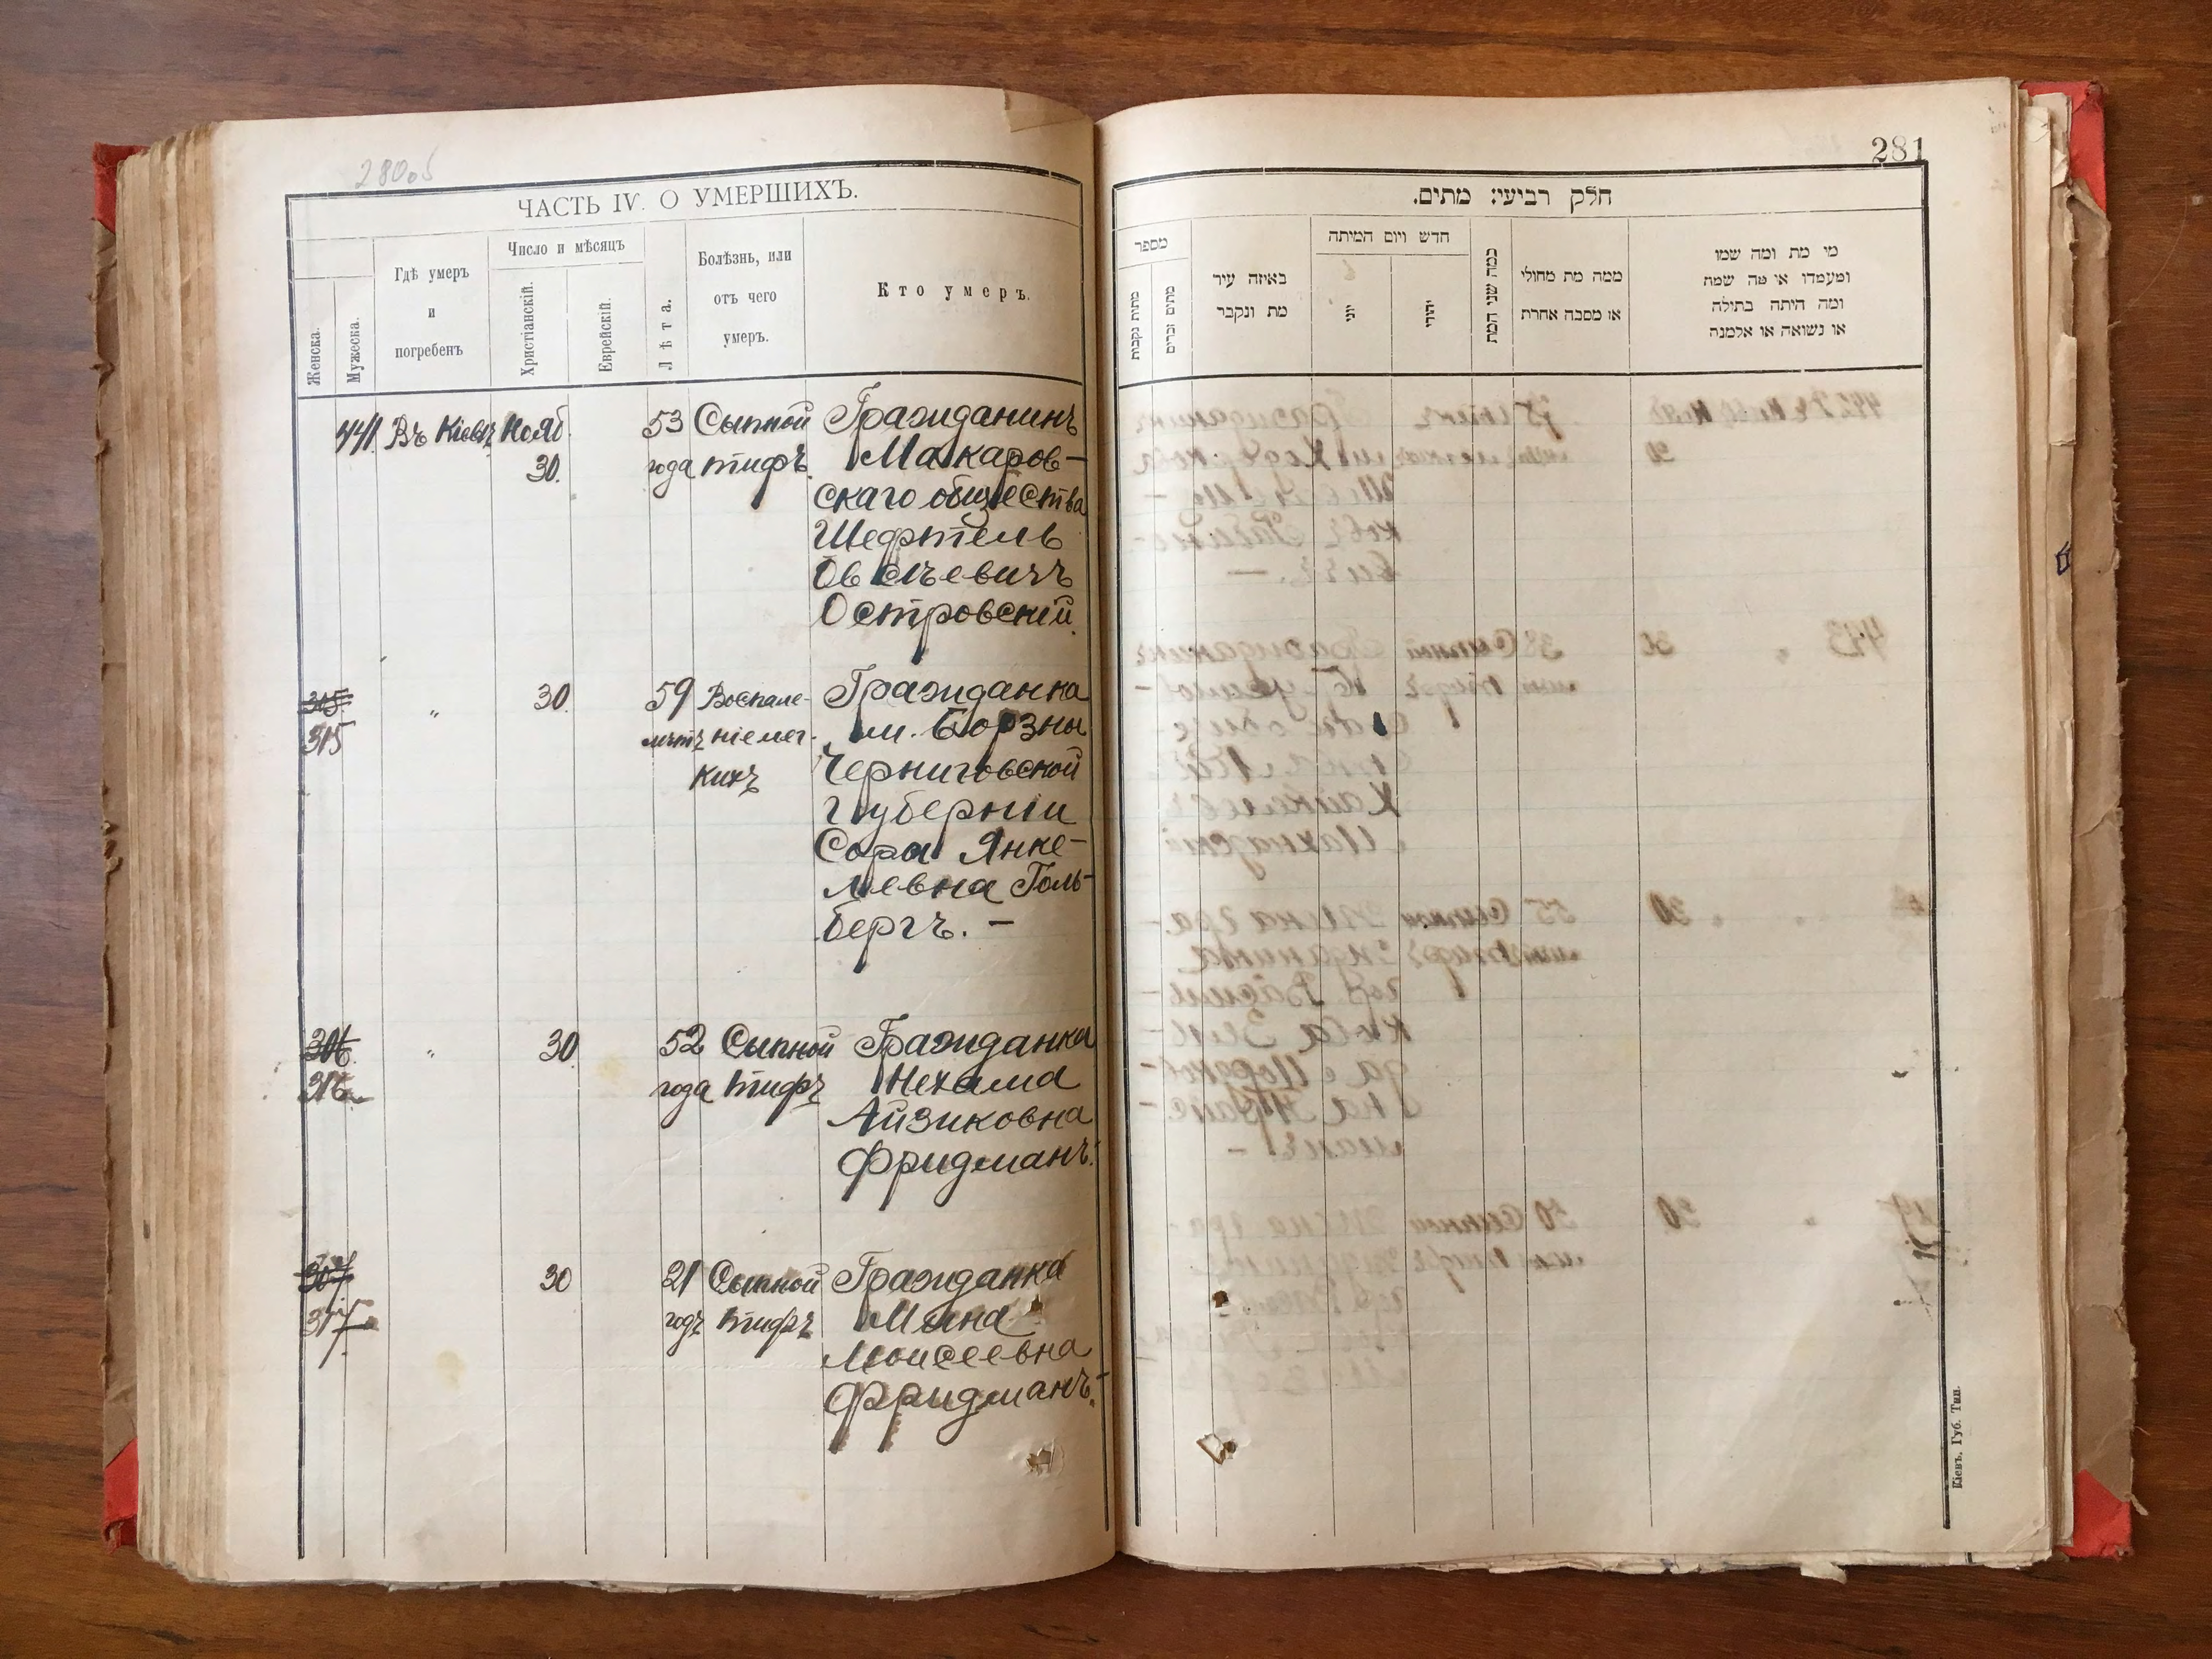 280об
ЧАСТЬ IV. О УМЕРШИХЪ.
Женска.
Мужеска.
Гдѣ умеръ
и
погребенъ
Число и мѣсяцъ
Христіанскій.
Еврейскій.
Лѣта.
Болѣзнь, или
отъ чего
умеръ.
Кто умеръ.
441 Въ Кіевѣ Нояб. 53 Сыпной Гражданинъ
30. года тифъ. Макаров-
скаго общества
Шефтель
Овсѣевичъ
Островскій.
305. „ 30. 59 Воспале- Гражданка
315 лѣтъ ніе лег- м. Борзны
кихъ Черниговской
губерніи
Сора Янке-
левна Голь-
бергъ. —
306. „ 30 52 Сыпной Гражданка
316 года тифъ Нехама
Айзиковна
Фридманъ.
307. 30 21 Сыпной Гражданка
317 годъ тифъ
Моисеевна
Фридманъ.
281
חלק רביעי: מתים.
מספר
מתות נקבות
מתים זכרים
באיזה עיר
מת ונקבר
חדש ויום המיתה
יוני
יהודי
כמה שני המת
ממה מת מחולי
או מסבה אחרת
מי מת ומה שמו
ומעמדו או מה שמה
ומה היתה בתולה
או נשואה או אלמנה
Кіевъ. Губ. Тип.